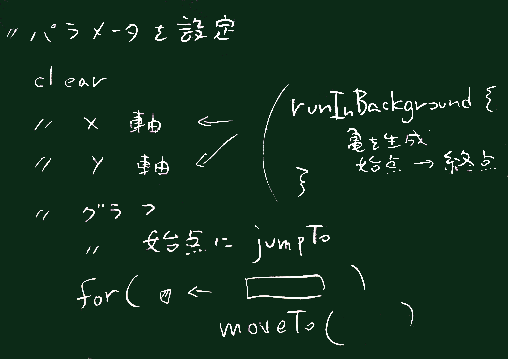 // パラメータを設定
clear
// X 軸 ←
// Y 軸 ←
runInBackground {
亀を生成
始点 → 終点
}
// グラフ
// 始点に jumpTo
for( ← )
moveTo( )